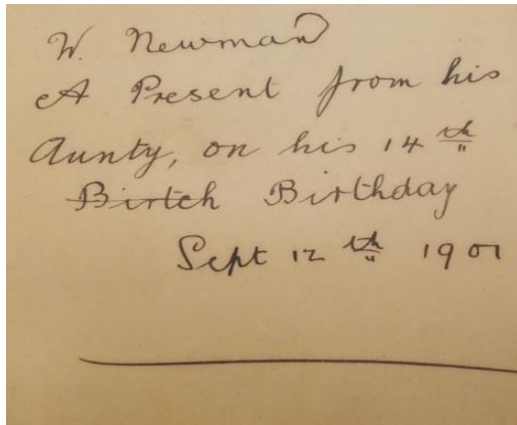 W. Newman
A Present from his
Aunty, on his 14th
Birtch Birthday
Sept 12th 1901